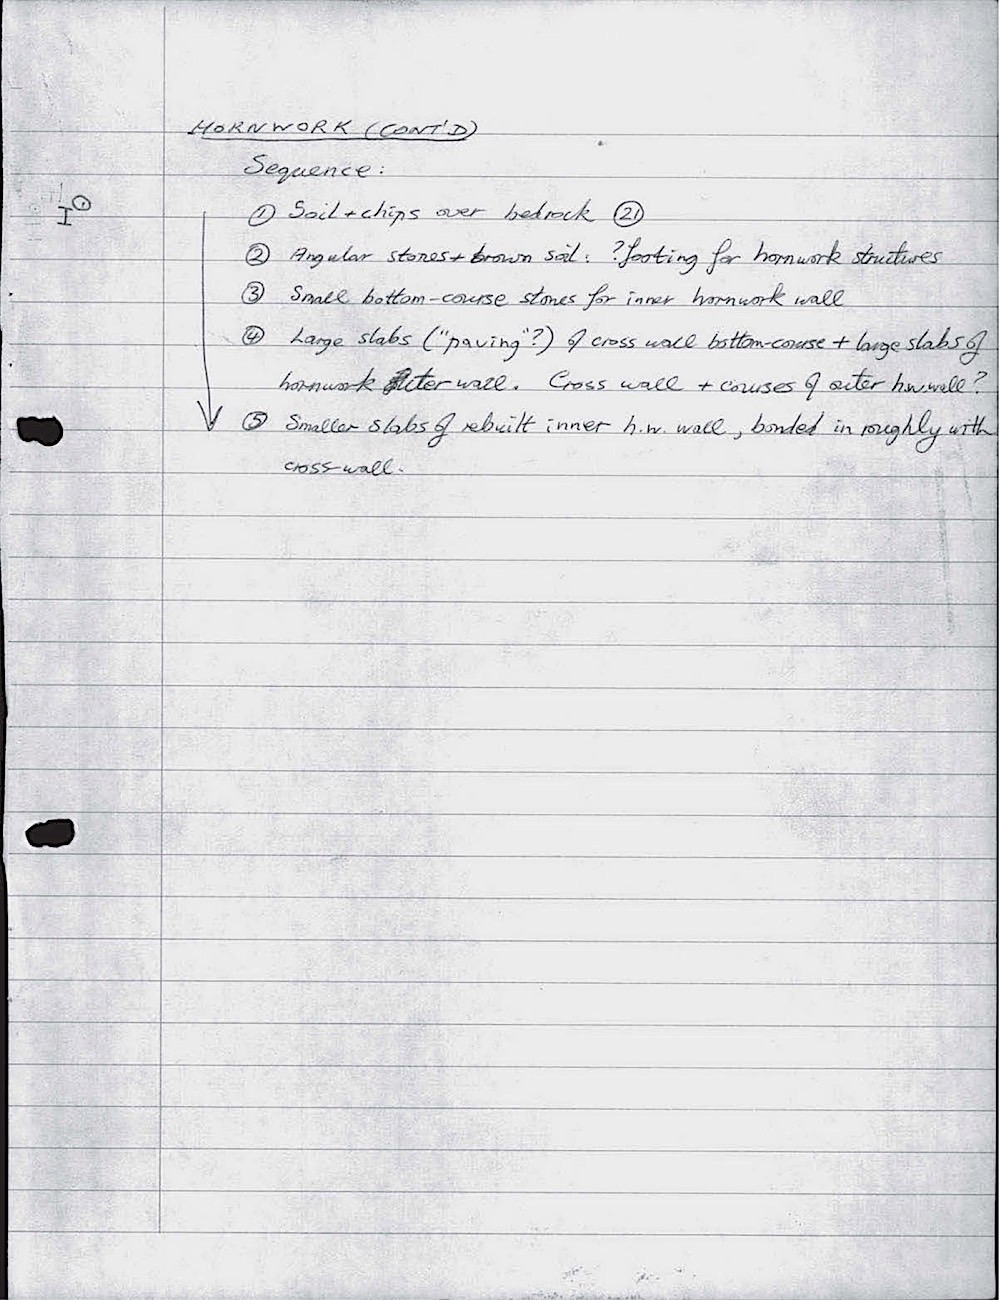 HORNWORK (CONT'D)
Sequence:
I ①
① Soil + chips over bedrock ㉑
② Angular stones + brown soil: ?footing for hornwork structures
③ Small bottom-course stones for inner hornwork wall
④ Large slabs ("paving"?) of cross wall bottom-course + large slabs of
hornwork outer wall. Cross wall + courses of outer h.w. wall?
⑤ Smaller slabs of rebuilt inner h.w. wall, bonded in roughly with
cross-wall.